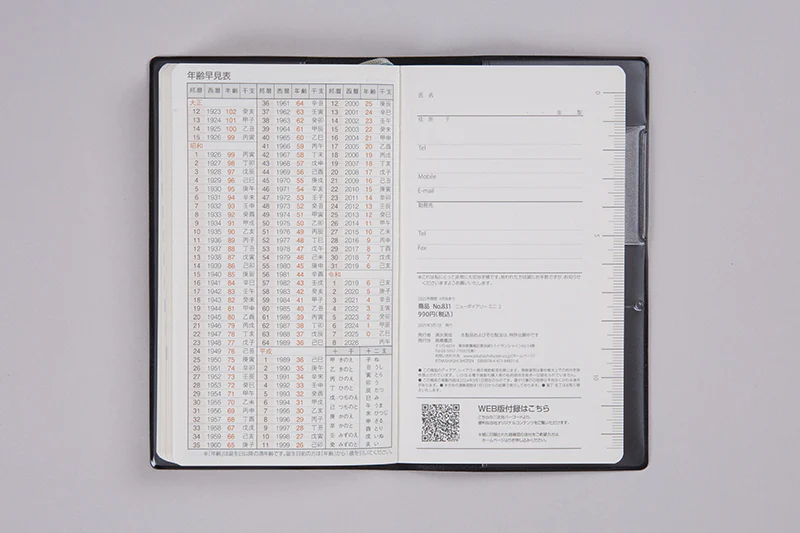 年齢早見表
邦暦 西暦 年齢 干支
大正
12 1923 102 癸亥
13 1924 101 甲子
14 1925 100 乙丑
15 1926 99 丙寅
昭和
1 1926 99 丙寅
2 1927 98 丁卯
3 1928 97 戊辰
4 1929 96 己巳
5 1930 95 庚午
6 1931 94 辛未
7 1932 93 壬申
8 1933 92 癸酉
9 1934 91 甲戌
10 1935 90 乙亥
11 1936 89 丙子
12 1937 88 丁丑
13 1938 87 戊寅
14 1939 86 己卯
15 1940 85 庚辰
16 1941 84 辛巳
17 1942 83 壬午
18 1943 82 癸未
19 1944 81 甲申
20 1945 80 乙酉
21 1946 79 丙戌
22 1947 78 丁亥
23 1948 77 戊子
24 1949 76 己丑
25 1950 75 庚寅
26 1951 74 辛卯
27 1952 73 壬辰
28 1953 72 癸巳
29 1954 71 甲午
30 1955 70 乙未
31 1956 69 丙申
32 1957 68 丁酉
33 1958 67 戊戌
34 1959 66 己亥
35 1960 65 庚子
邦暦 西暦 年齢 干支
36 1961 64 辛丑
37 1962 63 壬寅
38 1963 62 癸卯
39 1964 61 甲辰
40 1965 60 乙巳
41 1966 59 丙午
42 1967 58 丁未
43 1968 57 戊申
44 1969 56 己酉
45 1970 55 庚戌
46 1971 54 辛亥
47 1972 53 壬子
48 1973 52 癸丑
49 1974 51 甲寅
50 1975 50 乙卯
51 1976 49 丙辰
52 1977 48 丁巳
53 1978 47 戊午
54 1979 46 己未
55 1980 45 庚申
56 1981 44 辛酉
57 1982 43 壬戌
58 1983 42 癸亥
59 1984 41 甲子
60 1985 40 乙丑
61 1986 39 丙寅
62 1987 38 丁卯
63 1988 37 戊辰
64 1989 36 己巳
平成
1 1989 36 己巳
2 1990 35 庚午
3 1991 34 辛未
4 1992 33 壬申
5 1993 32 癸酉
6 1994 31 甲戌
7 1995 30 乙亥
8 1996 29 丙子
9 1997 28 丁丑
10 1998 27 戊寅
11 1999 26 己卯
邦暦 西暦 年齢 干支
12 2000 25 庚辰
13 2001 24 辛巳
14 2002 23 壬午
15 2003 22 癸未
16 2004 21 甲申
17 2005 20 乙酉
18 2006 19 丙戌
19 2007 18 丁亥
20 2008 17 戊子
21 2009 16 己丑
22 2010 15 庚寅
23 2011 14 辛卯
24 2012 13 壬辰
25 2013 12 癸巳
26 2014 11 甲午
27 2015 10 乙未
28 2016 9 丙申
29 2017 8 丁酉
30 2018 7 戊戌
31 2019 6 己亥
令和
1 2019 6 己亥
2 2020 5 庚子
3 2021 4 辛丑
4 2022 3 壬寅
5 2023 2 癸卯
6 2024 1 甲辰
7 2025 0 乙巳
8 2026 - 丙午
十干 十二支
甲 きのえ 子 ね
乙 きのと 丑 うし
丙 ひのえ 寅 とら
丁 ひのと 卯 う
戊 つちのえ 辰 たつ
己 つちのと 巳 み
庚 かのえ 午 うま
辛 かのと 未 ひつじ
壬 みずのえ 申 さる
癸 みずのと 酉 とり
戌 いぬ
亥 い
※「年齢」は誕生日以降の満年齢です。誕生日前の方は「年齢」から1歳を引いてください。
氏名
年 型
住所 〒
Tel
Mobile
E-mail
勤務先
Tel
Fax
商品 No.831 ニューダイアリー ミニ 2
990円(税込)
0
5
10
WEB版付録はこちら